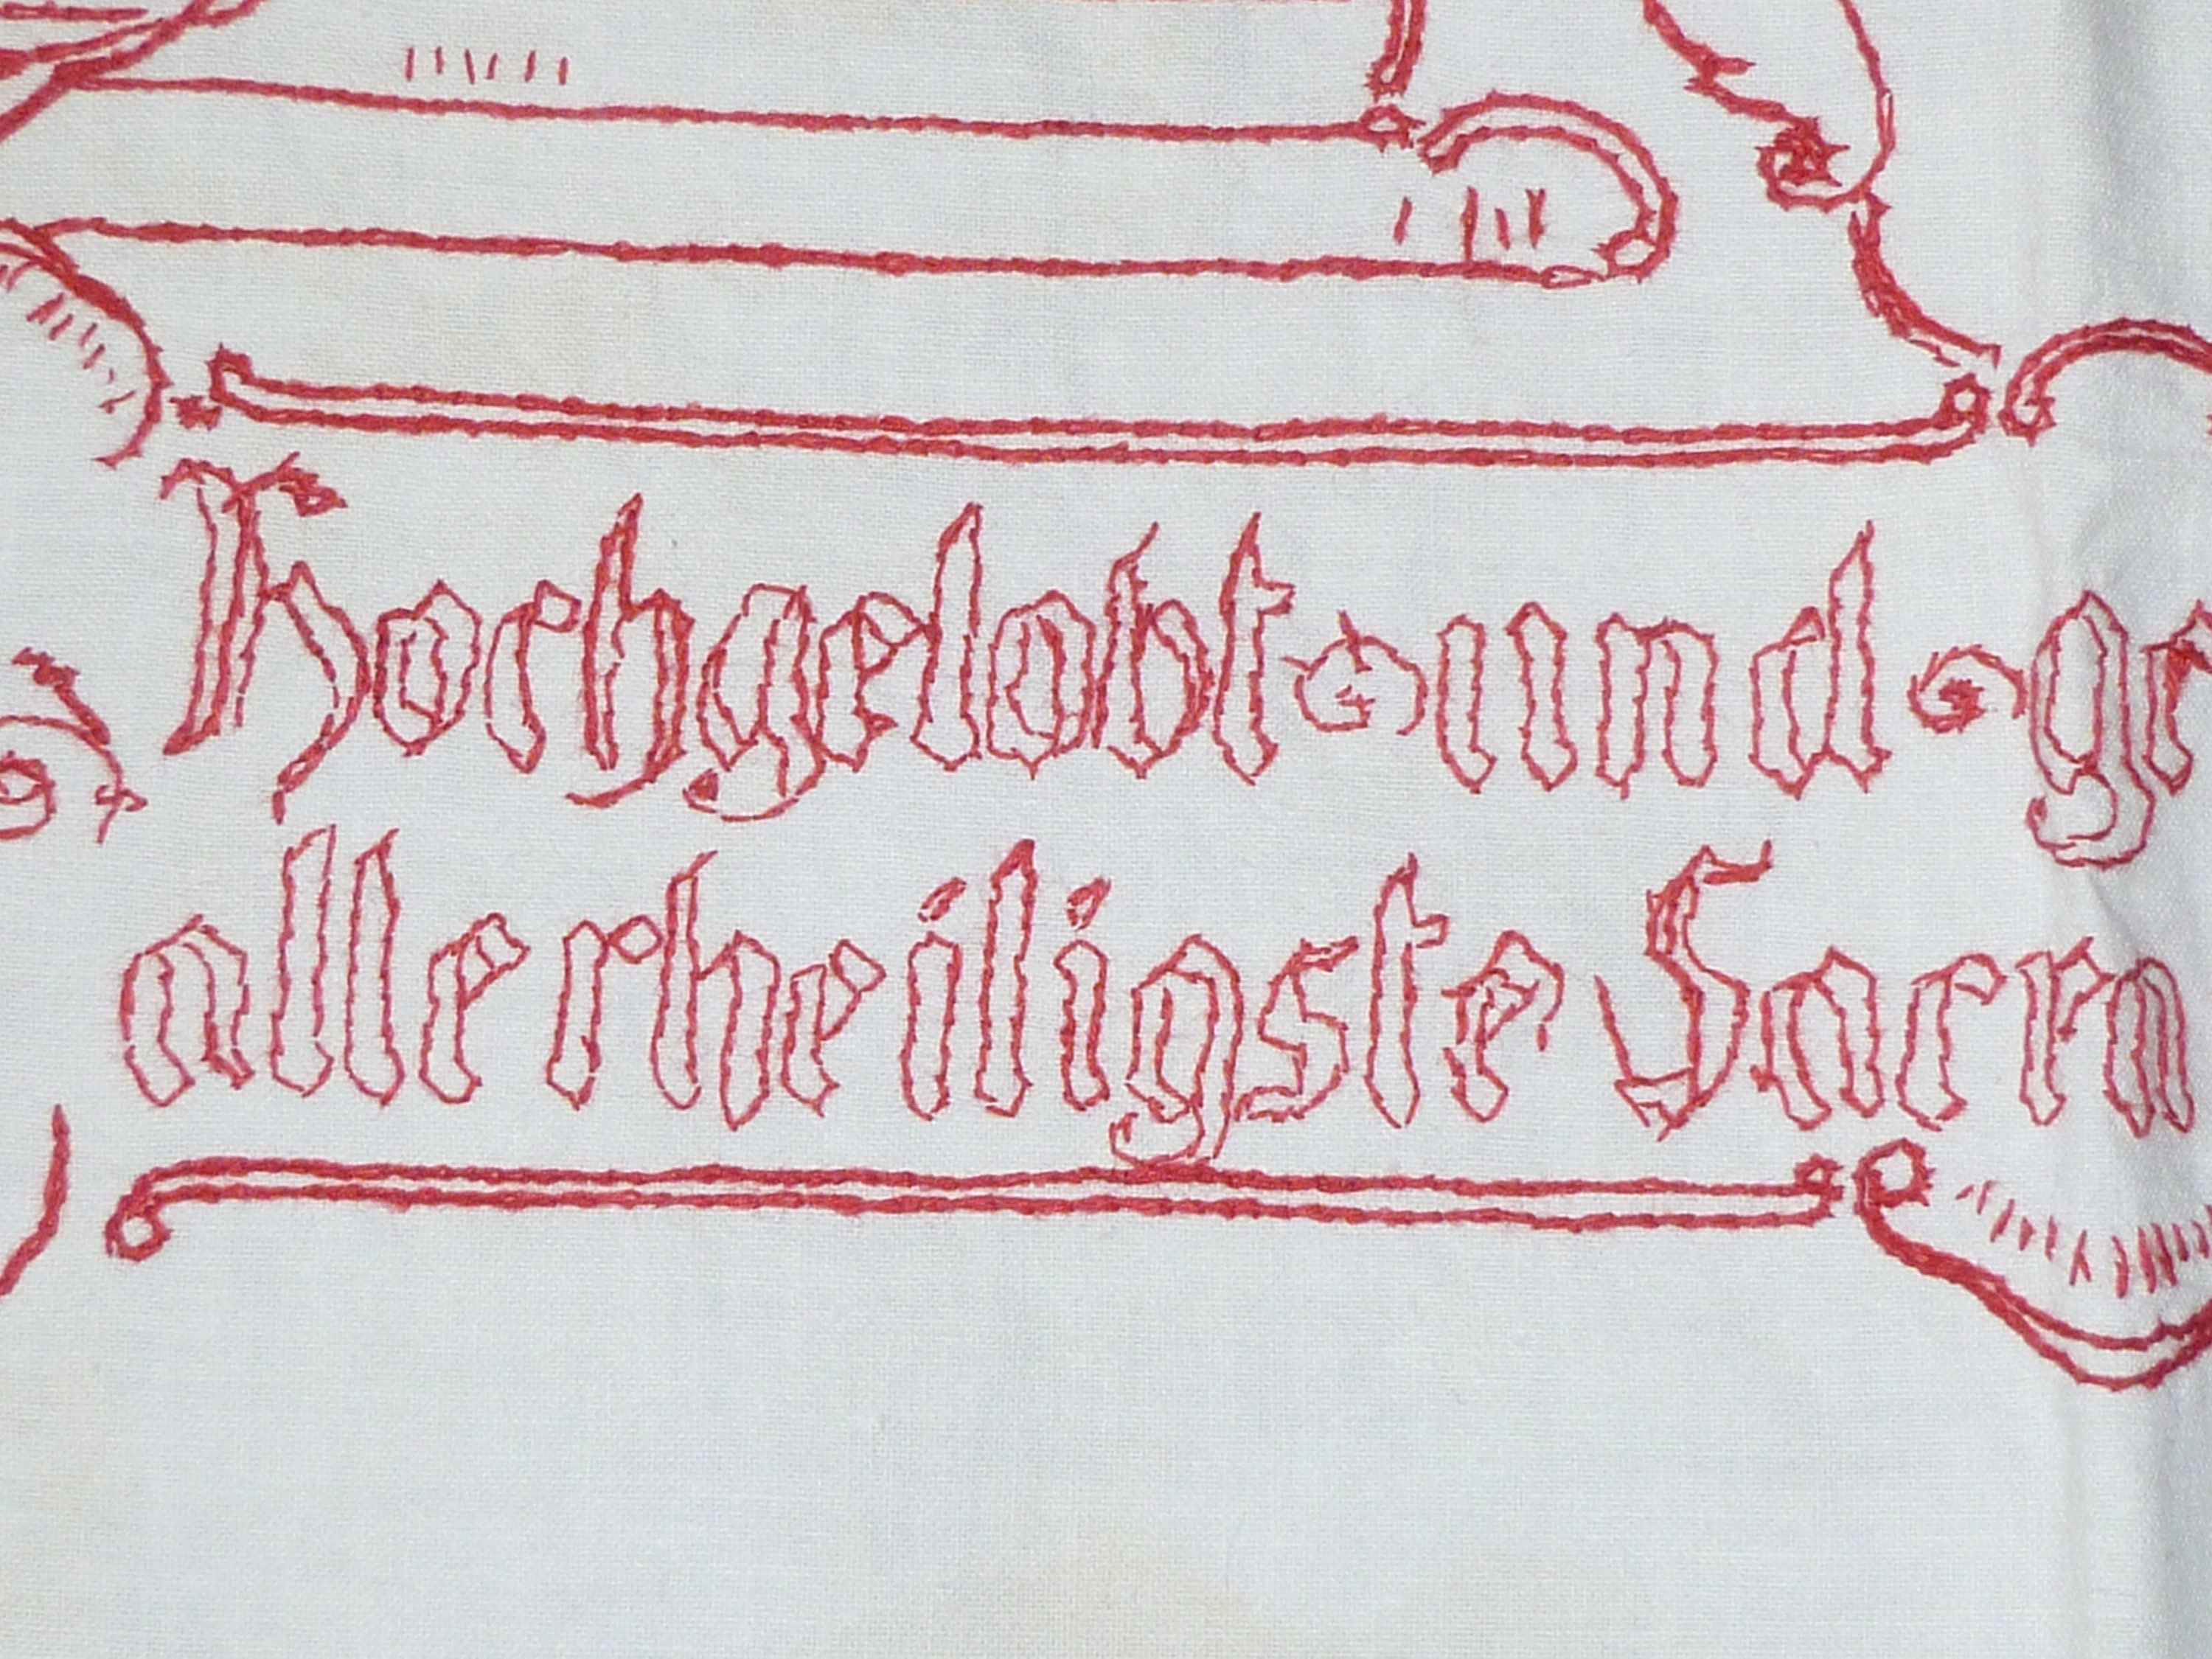 Hochgelobt und g
allerheiligste Sacra